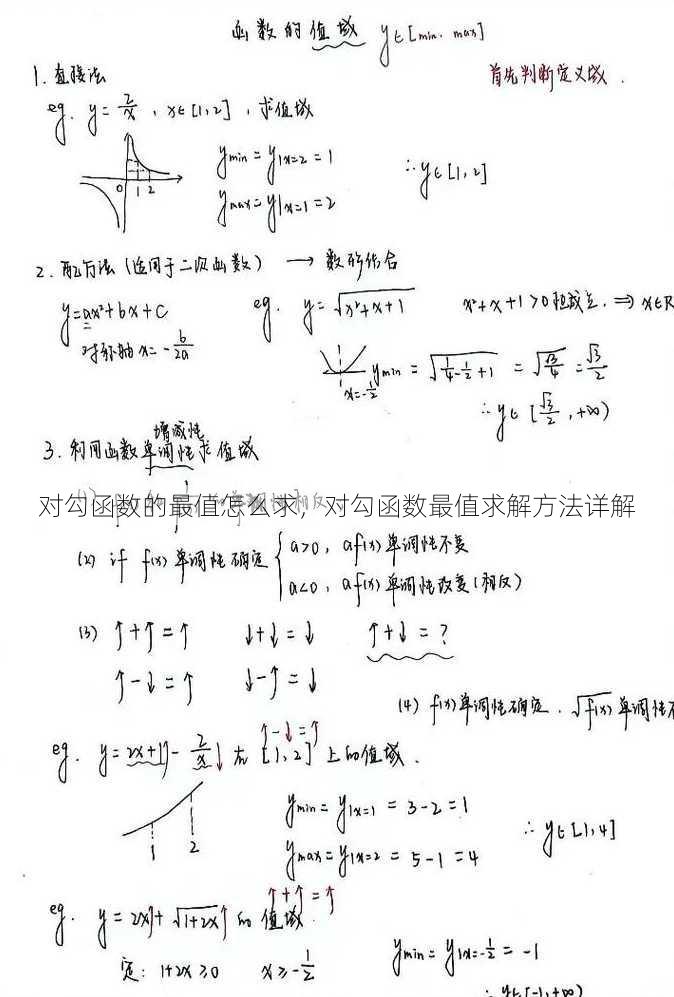 函数的值域 y∈[min, max]
1. 直接法 首先判断定义域.
eg. y=2/x, x∈[1,2], 求值域
0 1 2
ymin=y|x=2=1
ymax=y|x=1=2
∴y∈[1,2]
2. 配方法 (适用于二次函数) → 数形结合
y=ax²+bx+c
对称轴 x=-b/2a
eg. y=√(x²+x+1) x²+x+1>0恒成立, ⇒ x∈R
x=-1/2
ymin=√(1/4-1/2+1) = √(√3/4) = √3/2
∴y∈[√3/2, +∞)
增减性
3. 利用函数单调性求值域
对勾函数的最值怎么求，对勾函数最值求解方法详解
(2) if f(x) 单调性确定 { a>0, af(x) 单调性不变
a<0, af(x) 单调性改变(相反)
(3) ↑+↑=↑ ↓+↓=↓ ↑+↓=?
↑-↓=↑ ↓-↑=↓
(4) f(x)单调性确定, √f(x) 单调性不
↑-↓=↑
eg. y=2x+1↑-2/x↓ 在 [1,2] 上的值域.
1 2
ymin=y|x=1=3-2=1
ymax=y|x=2=5-1=4
∴y∈[1,4]
↑+↑=↑
eg. y=2x↑+√(1+2x)↑ 的值域.
定: 1+2x≥0 x≥-1/2
ymin=y|x=-1/2=-1
∴y∈[-1,+∞)